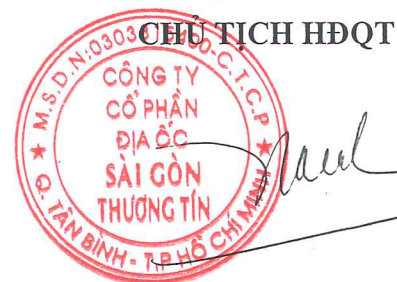 CHỦ TỊCH HĐQT
CÔNG TY
CỔ PHẦN
ĐỊA ỐC
SÀI GÒN
THƯƠNG TÍN
Q. TÂN BÌNH - T.P HỒ CHÍ MINH